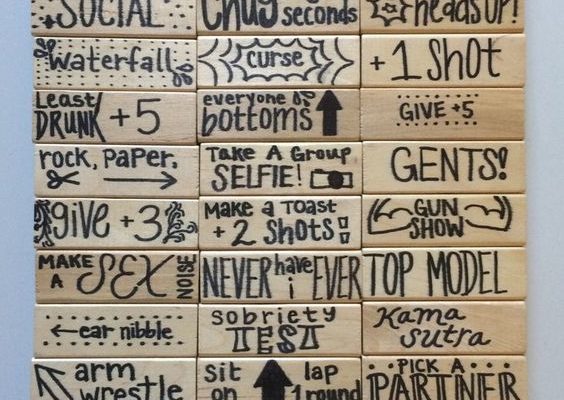 SOCIAL
chug seconds
heads up!
waterfall
curse
+1 shot
Least
DRUNK +5
everyone
bottoms
GIVE +5
rock, paper,
Take A Group
SELFIE!
GENTS!
give +3
Make a Toast
+2 shots!
GUN
SHOW
MAKE
A SEX NOISE
NEVER have i EVER
TOP MODEL
ear nibble
sobriety
TEST
Kama
Sutra
arm
wrestle
sit lap
on 1 round
PICK A
PARTNER